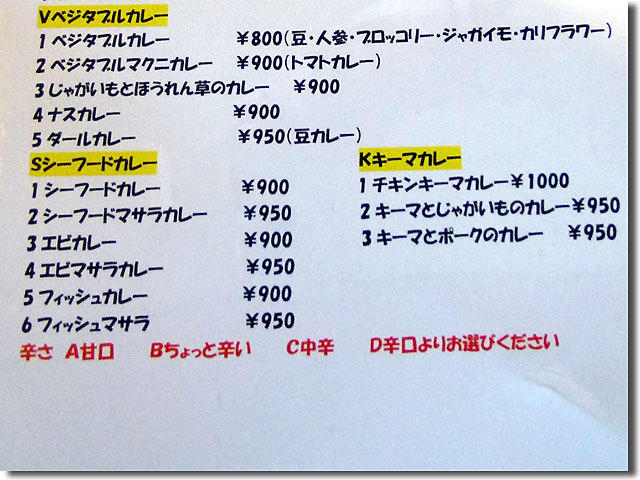 Vベジタブルカレー
1 ベジタブルカレー ¥800(豆・人参・ブロッコリー・ジャガイモ・カリフラワー)
2 ベジタブルマクニカレー ¥900(トマトカレー)
3 じゃがいもとほうれん草のカレー ¥900
4 ナスカレー ¥900
5 ダールカレー ¥950(豆カレー)
Sシーフードカレー
1 シーフードカレー ¥900
2 シーフードマサラカレー ¥950
3 エビカレー ¥900
4 エビマサラカレー ¥950
5 フィッシュカレー ¥900
6 フィッシュマサラ ¥950
Kキーマカレー
1 チキンキーマカレー¥1000
2 キーマとじゃがいものカレー¥950
3 キーマとポークのカレー ¥950
辛さ A甘口 Bちょっと辛い C中辛 D辛口よりお選びください